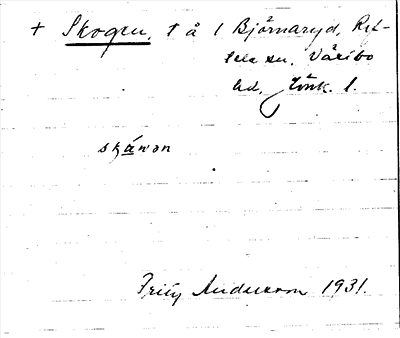 + Skogen, t å 1 Björnaryd, Ref-
tele sn, Västbo
hd, Jönk. l.
skáwən
Fritz Andersson 1931.